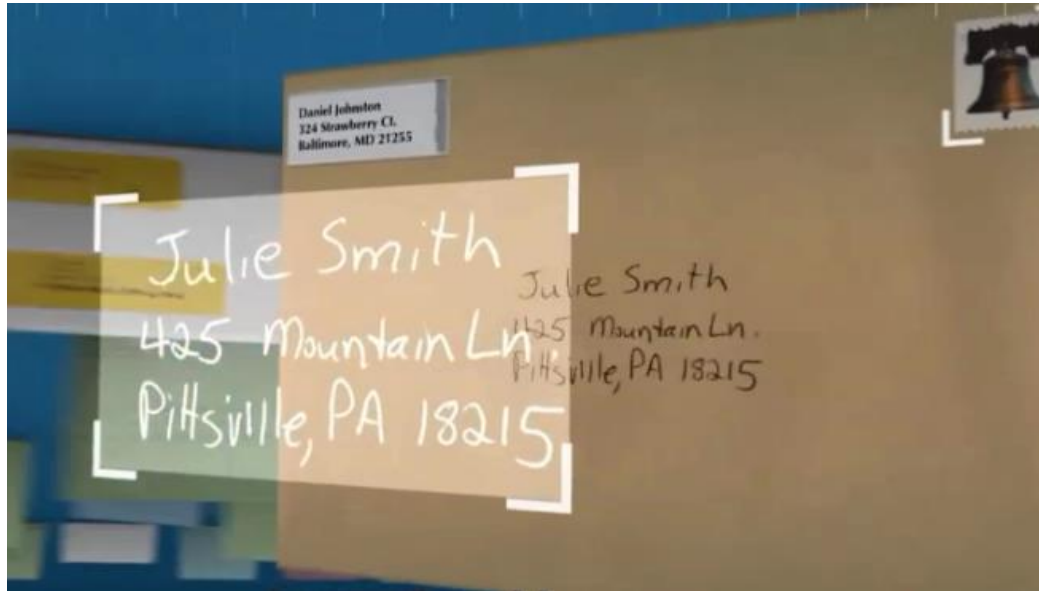 Daniel Johnston
324 Strawberry Ct.
Baltimore, MD 21255
Julie Smith
425 Mountain Ln.
Pittsville, PA 18215
Julie Smith
425 Mountain Ln.
Pittsville, PA 18215